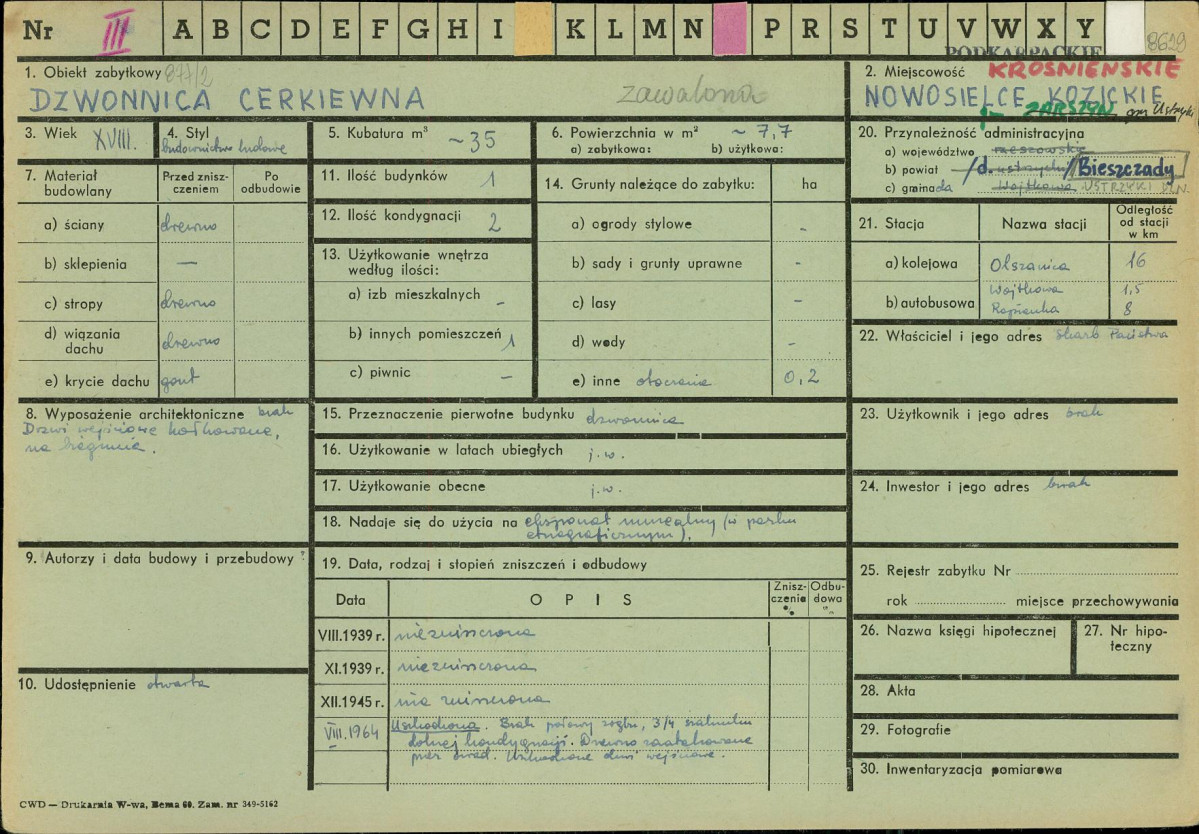 Nr III A B C D E F G H I K L M N P R S T U V W X Y
PODKARPACKIE 8629
1. Obiekt zabytkowy 877/2
DZWONNICA CERKIEWNA zawalona
2. Miejscowość KROŚNIEŃSKIE
NOWOSIELCE KOZICKIE
ZARSZYN gm Ustrzyki
3. Wiek XVIII.
4. Styl
budownictwo ludowe
5. Kubatura m³ ~35
6. Powierzchnia w m² ~ 7,7
a) zabytkowa: b) użytkowa:
20. Przynależność administracyjna
a) województwo rzeszowskie
b) powiat /d. ustrzycki/ Bieszczady
c) gmina Wojtkowa USTRZYKI DLN.
7. Materiał budowlany
Przed zniszczeniem
Po odbudowie
a) ściany drewno
b) sklepienia —
c) stropy drewno
d) wiązania dachu drewno
e) krycie dachu gont
11. Ilość budynków 1
12. Ilość kondygnacji 2
13. Użytkowanie wnętrza
według ilości:
a) izb mieszkalnych -
b) innych pomieszczeń 1
c) piwnic -
14. Grunty należące do zabytku: ha
a) ogrody stylowe -
b) sady i grunty uprawne -
c) lasy -
d) wody -
e) inne otoczenie 0,2
21. Stacja Nazwa stacji Odległość od stacji w km
a) kolejowa Olszanica 16
Wojtkowa 1,5
b) autobusowa 8
22. Właściciel i jego adres Skarb Państwa
8. Wyposażenie architektoniczne brak
Drzwi wejściowe kołkowane,
na biegunie.
15. Przeznaczenie pierwotne budynku dzwonnica
16. Użytkowanie w latach ubiegłych j.w.
17. Użytkowanie obecne j.w.
18. Nadaje się do użycia na eksponat muzealny (w parku
etnograficznym).
23. Użytkownik i jego adres brak
24. Inwestor i jego adres brak
9. Autorzy i data budowy i przebudowy ?
10. Udostępnienie otwarta
19. Data, rodzaj i stopień zniszczeń i odbudowy
Data OPIS Zniszczenie % Odbudowa %
VIII.1939 r. niezniszczona
XI.1939 r. niezniszczona
XII.1945 r. nie zniszczona
VIII.1964 Uszkodzona. Brak połowy zrębu, 3/4 szalunku
dolnej kondygnacji. Drewno zaatakowane
przez owad. Uszkodzone drzwi wejściowe.
25. Rejestr zabytku Nr
rok miejsce przechowywania
26. Nazwa księgi hipotecznej
27. Nr hipoteczny
28. Akta
29. Fotografie
30. Inwentaryzacja pomiarowa
CWD — Drukarnia W-wa, Bema 60. Zam. nr 349-5162